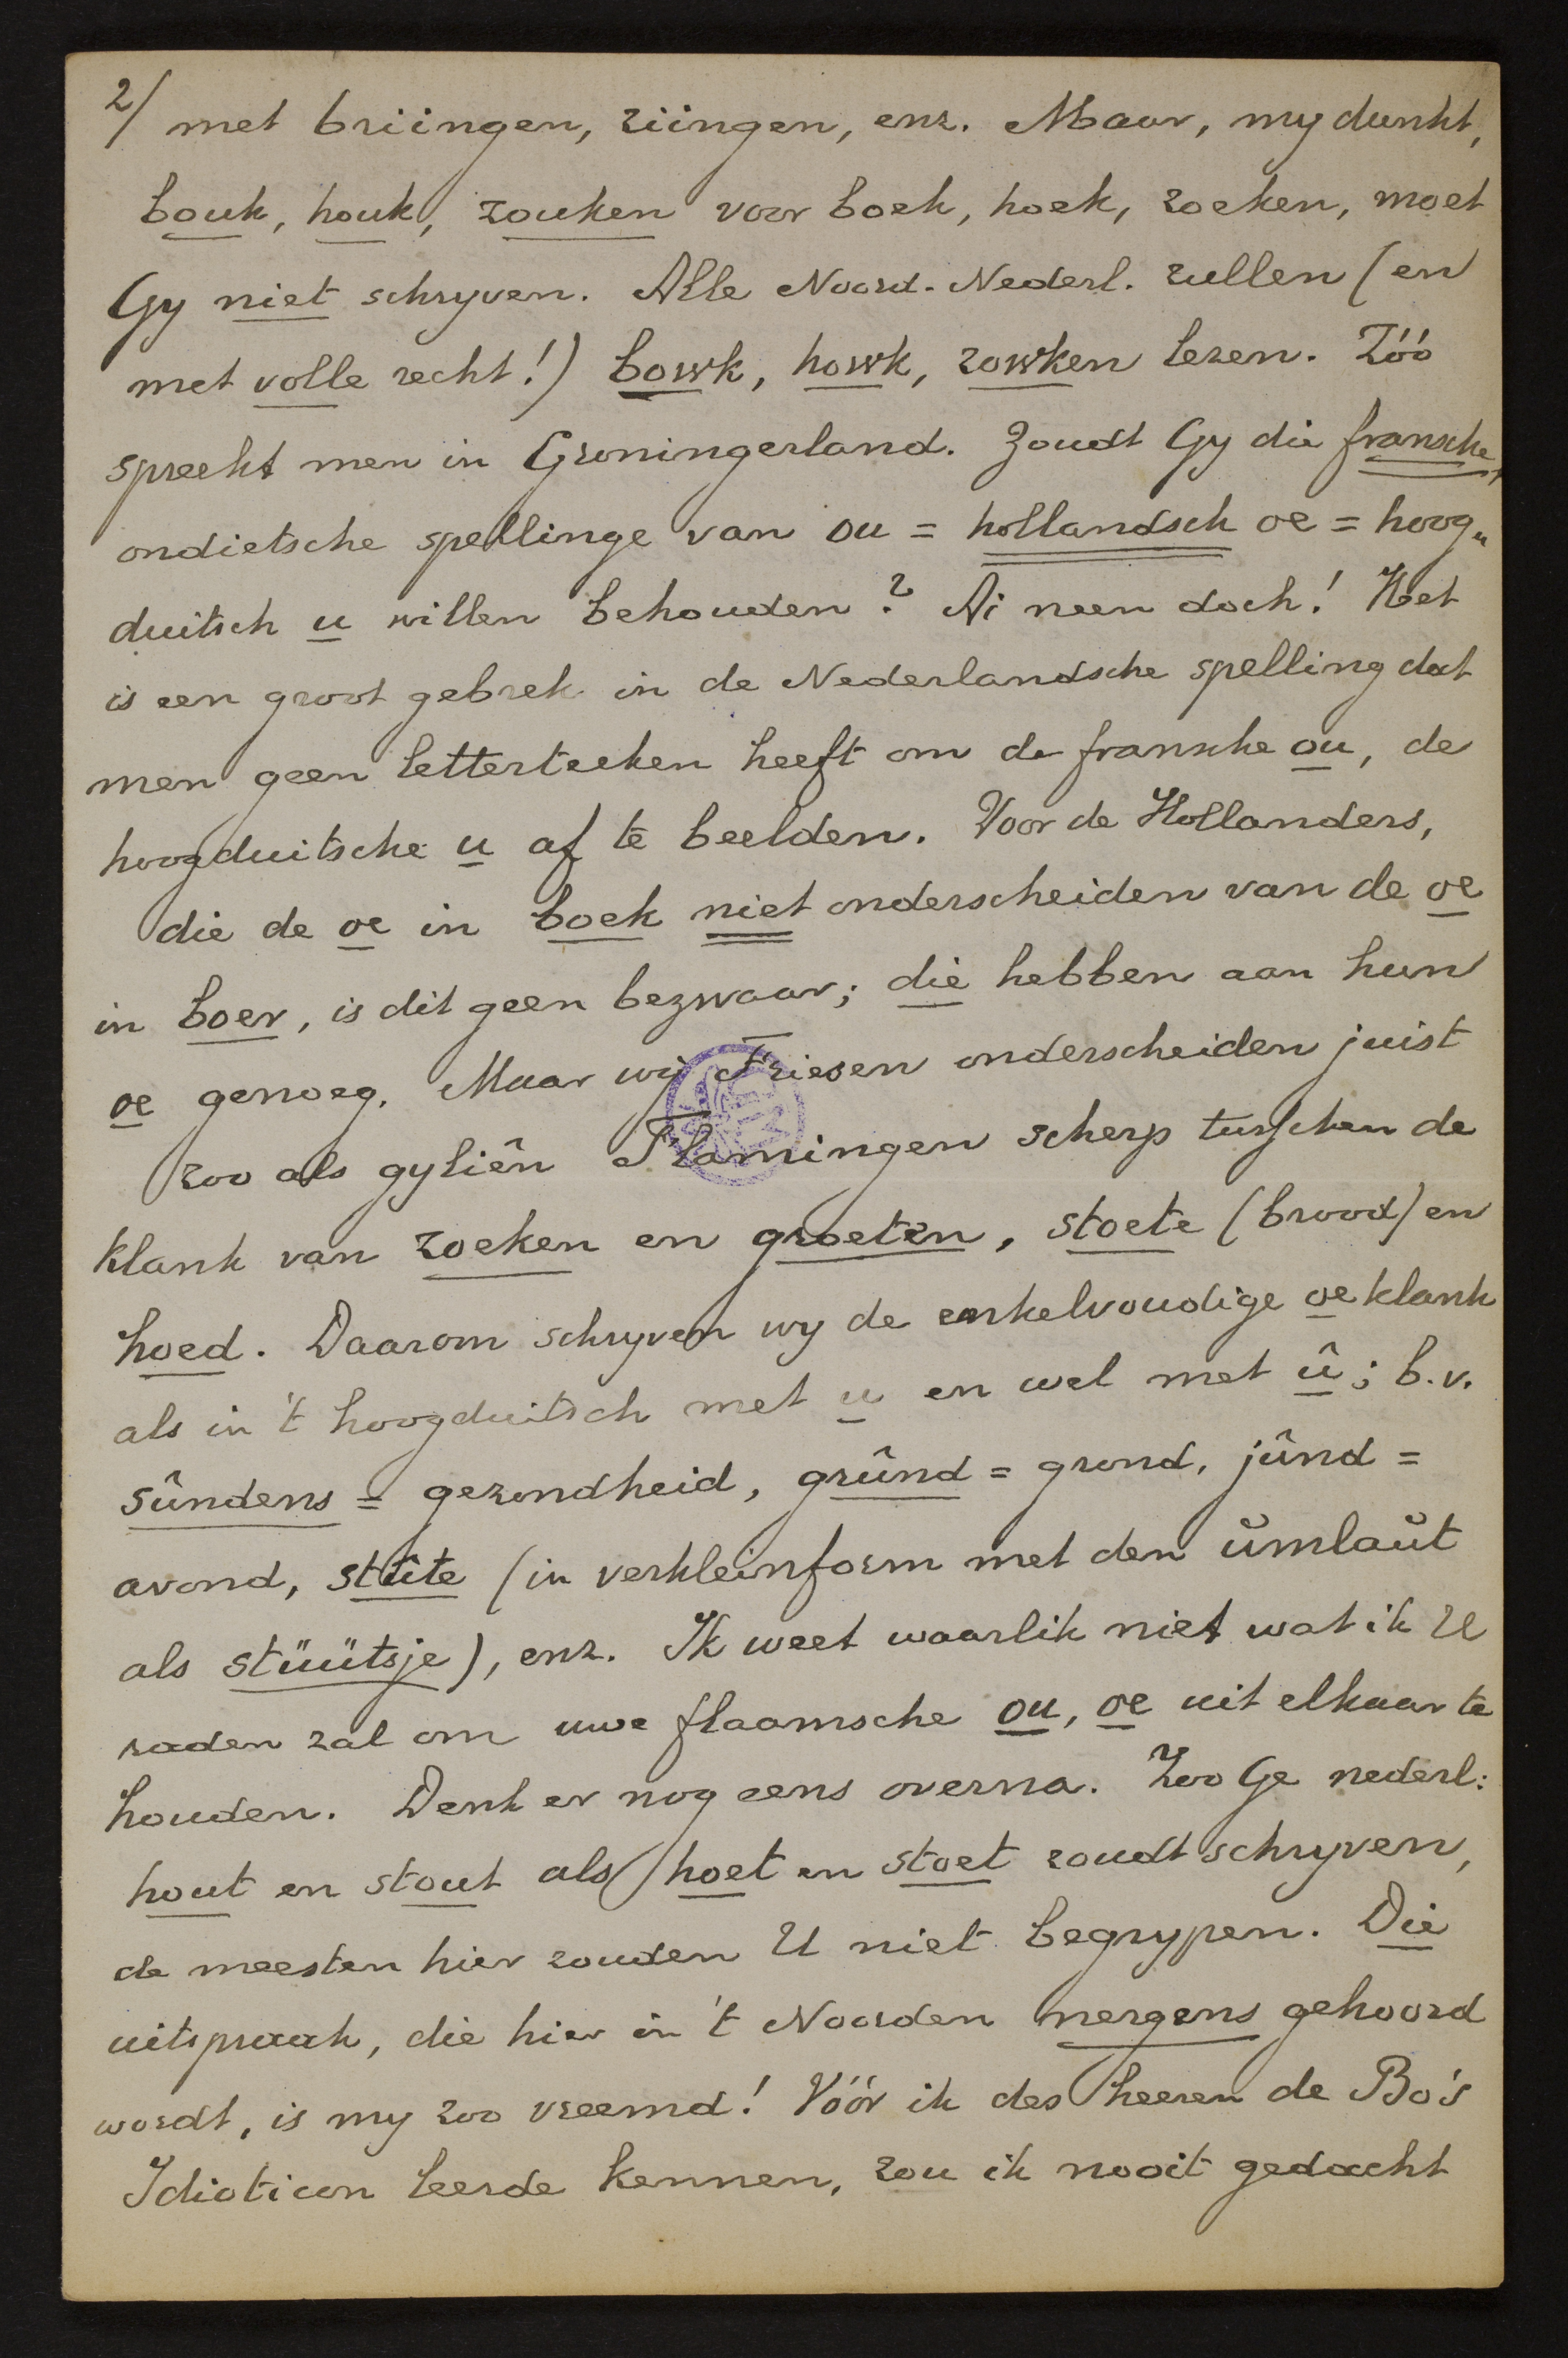 2/ met briingen, ziingen, enz. Maar, my dunkt,
bouk, houk, zouken voor boek, hoek, zoeken, moet
Gy niet schryven. Alle Noord-Nederl. zullen (en
met volle recht!) bowk, howk, zowken lezen. Zóó
spreekt men in Groningerland. Zoudt Gy die fransche,
ondietsche spellinge van ou = hollandsch oe = hoog„
duitsch u willen behouden? Ai neen doch! Het
is een groot gebrek in de Nederlandsche spelling dat
men geen letterteeken heeft om de fransche ou, de
hoogduitsche u af te beelden. Voor de Hollanders,
die de oe in boek niet onderscheiden van de oe
in boer, is dit geen bezwaar; die hebben aan hun
oe genoeg. Maar wij Friesen onderscheiden juist
zoo als gyliên Flamingen scherp tusschen de
klank van zoeken en groeten, stoete (brood) en
hoed. Daarom schryven wy de enkelvoudige oe klank
als in 't hoogduitsch met u en wel met û; b.v.
sûndens = gezondheid, grûnd = grond, jûnd =
avond, stûte (in verkleinform met den ŭmlaŭt
als stüütsje), enz. Ik weet waarlik niet wat ik U
raden zal om uwe flaamsche ou, oe uit elkaar te
houden. Denk er nog eens overna. Zoo Ge nederl:
hout en stout als hoet en stoet zoudt schryven,
de meesten hier zouden U niet begrypen. Die
uitspraak, die hier in 't Noorden nergens gehoord
wordt, is my zoo vreemd! Vóór ik des heeren de Bo's
Idioticon leerde kennen, zou ik nooit gedacht